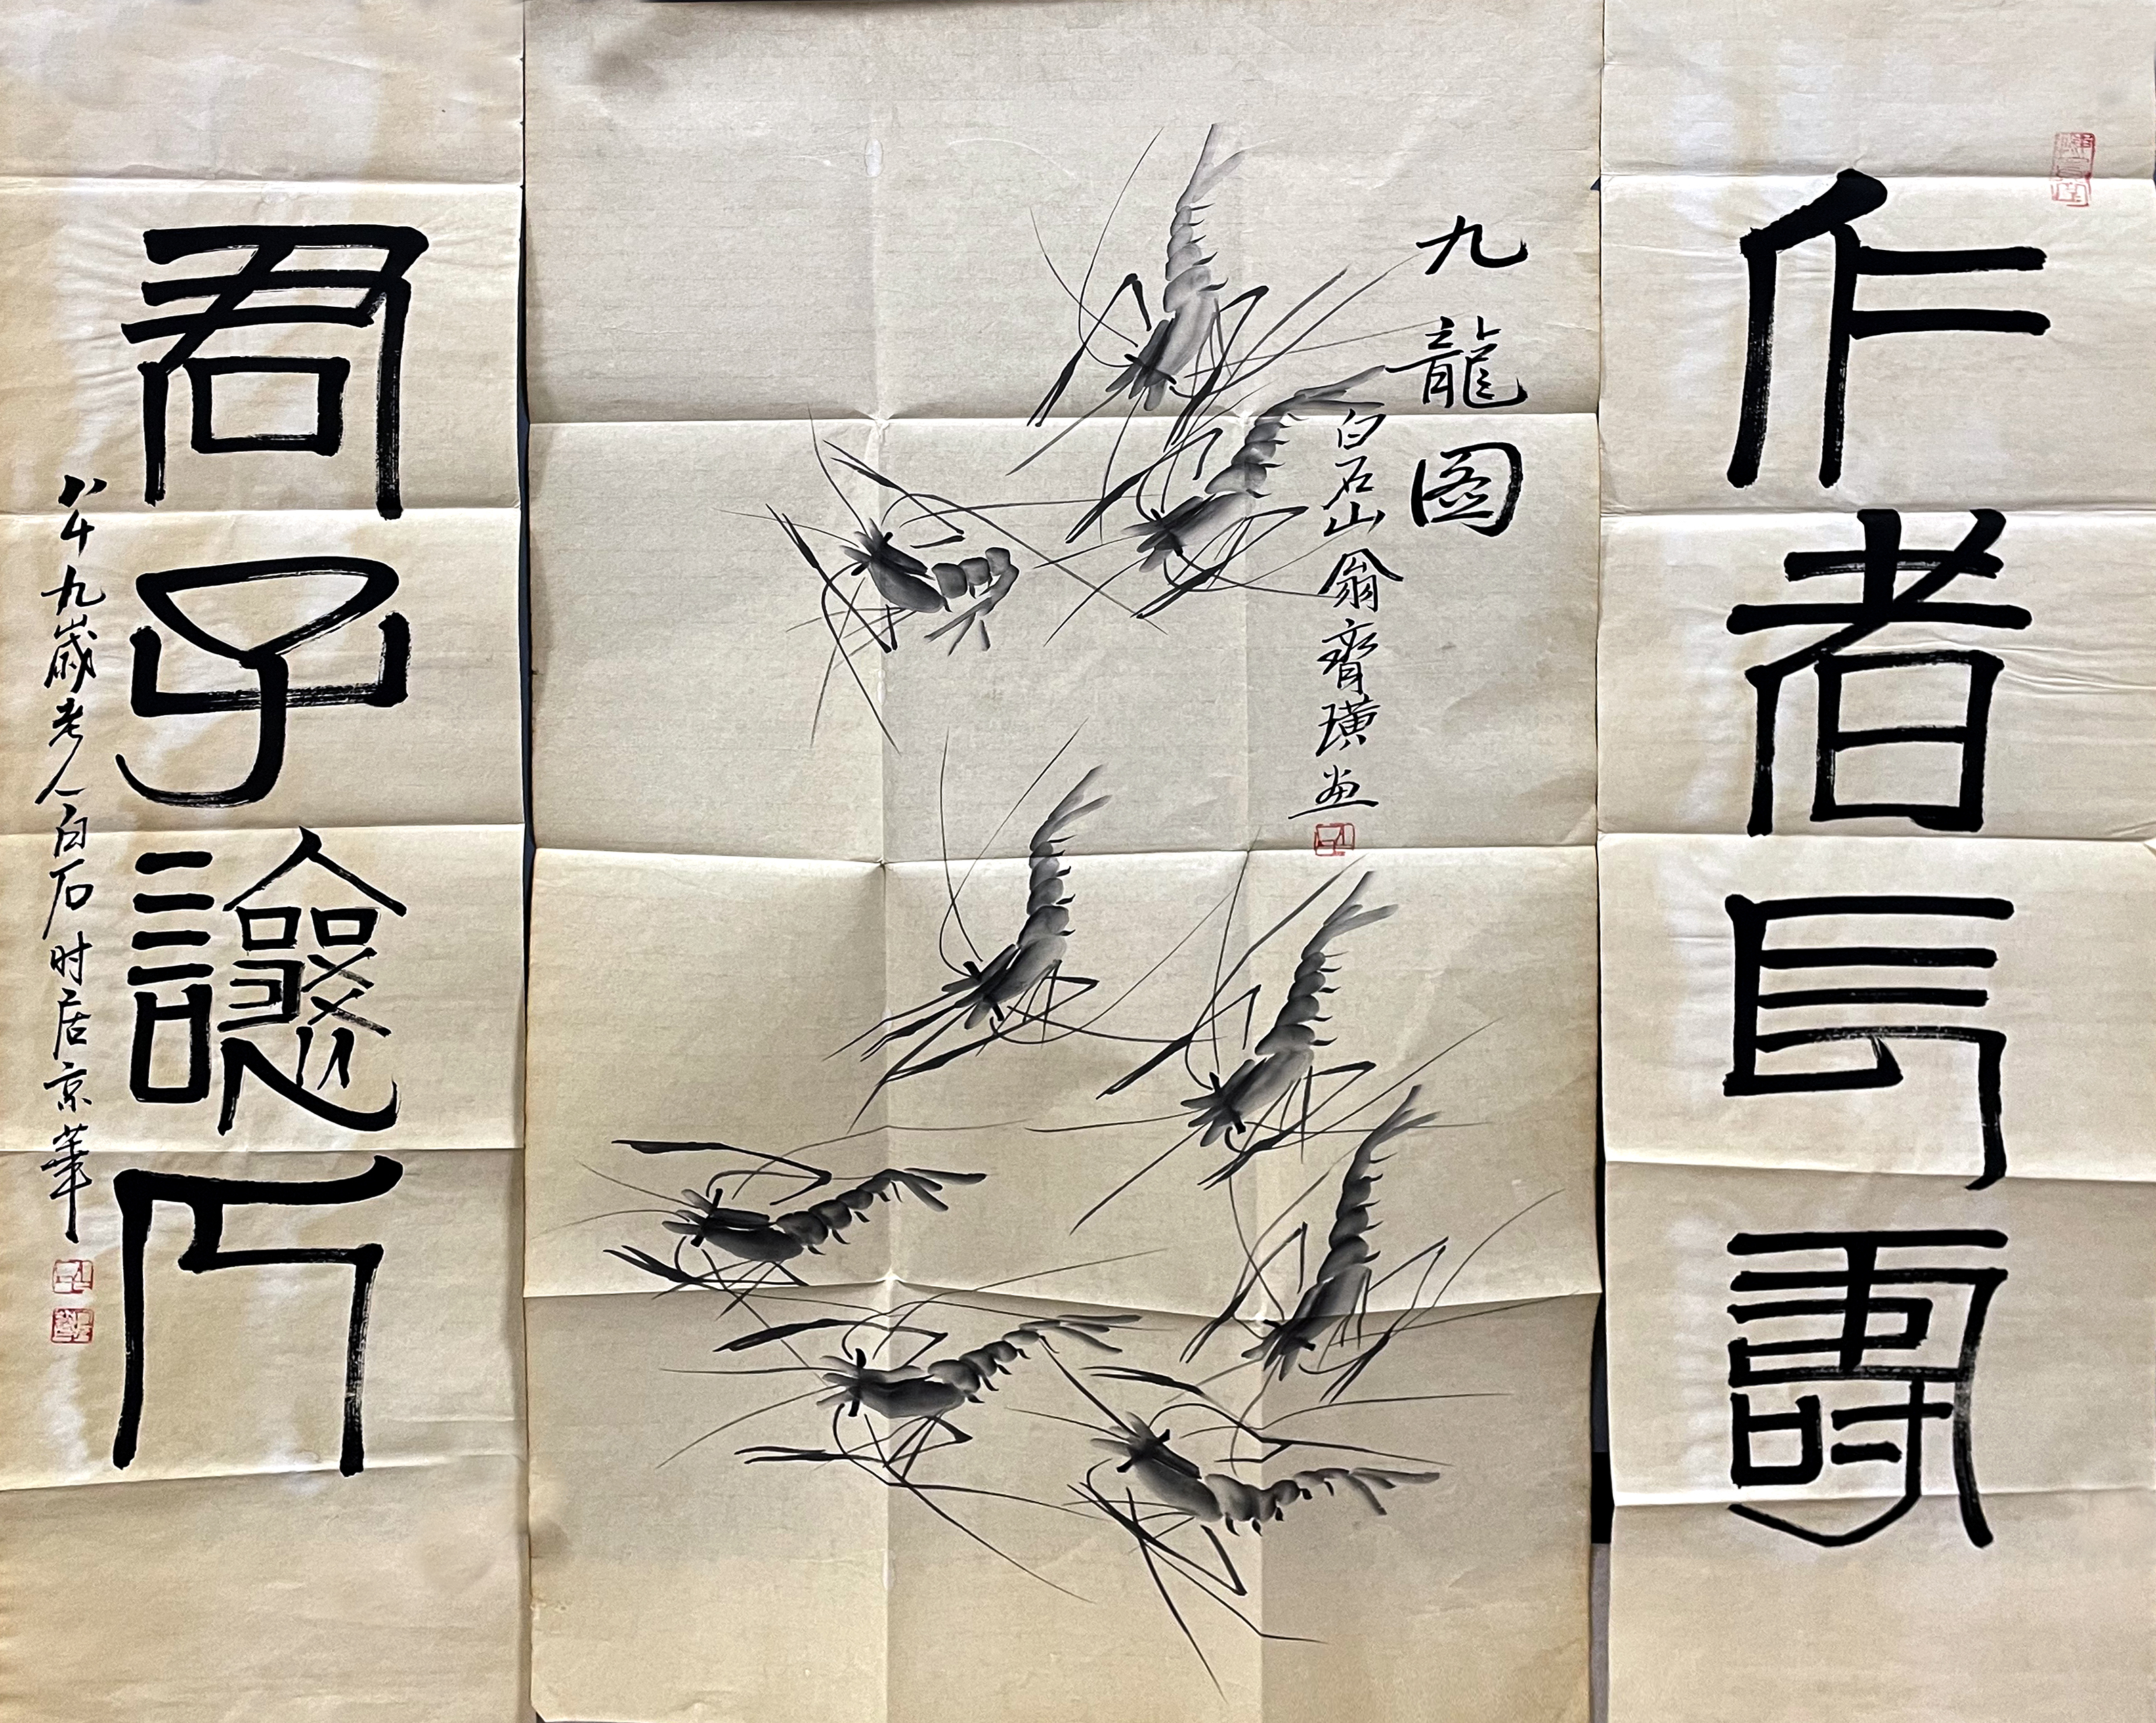 仁者長壽
九龍图
白石山翁齊璜画
君子讓人
八十九歲老人白石时居京華